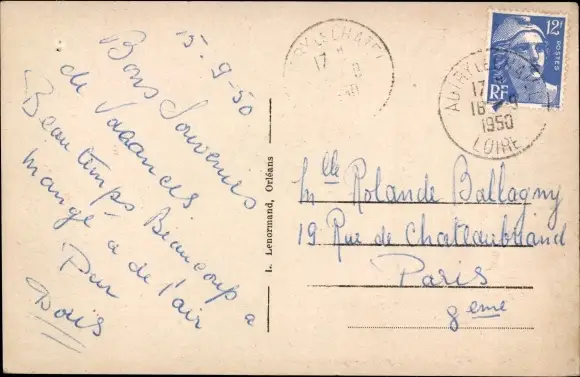 15-9-50
Bons Souvenirs
de Vacances
Beau temps Beaucoup a
mangé - a de l'air
Pur
Doris
I. Lenormand, Orléans
12F
POSTES
RF
AUTRY LE CHATEL
17
AUTRY LE CHATEL
17
18 -9
1950
LOIRET
Mlle Rolande Ballagny
19 Rue de Chateaubriand
Paris
8eme